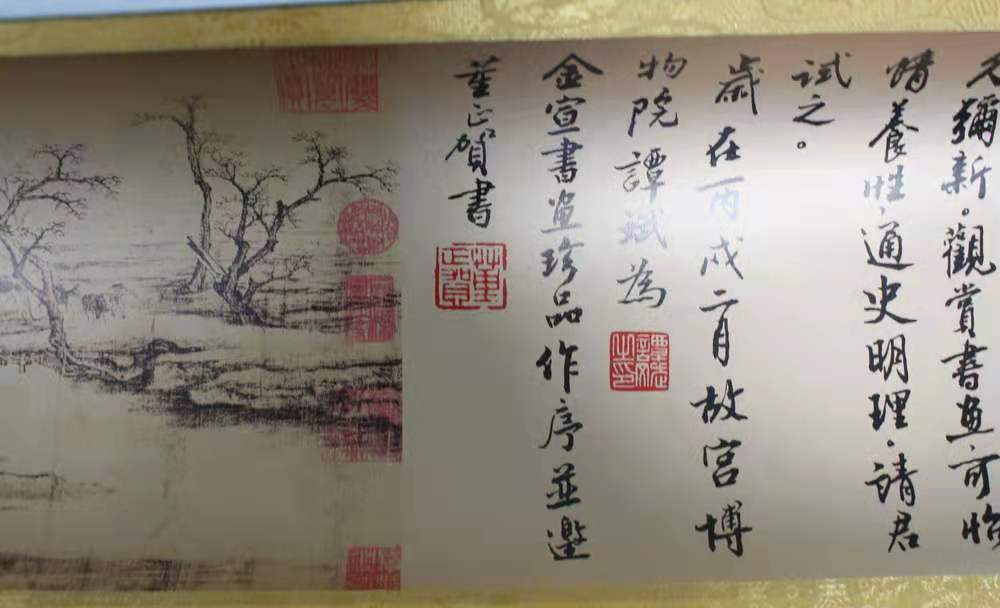 久彌新。觀賞書畫,可怡
情養性,通史明理。請君
試之。
歲在丙戌二月故宮博
物院譚斌為
金宣書畫珍品作序並邀
董正賀書
董正賀